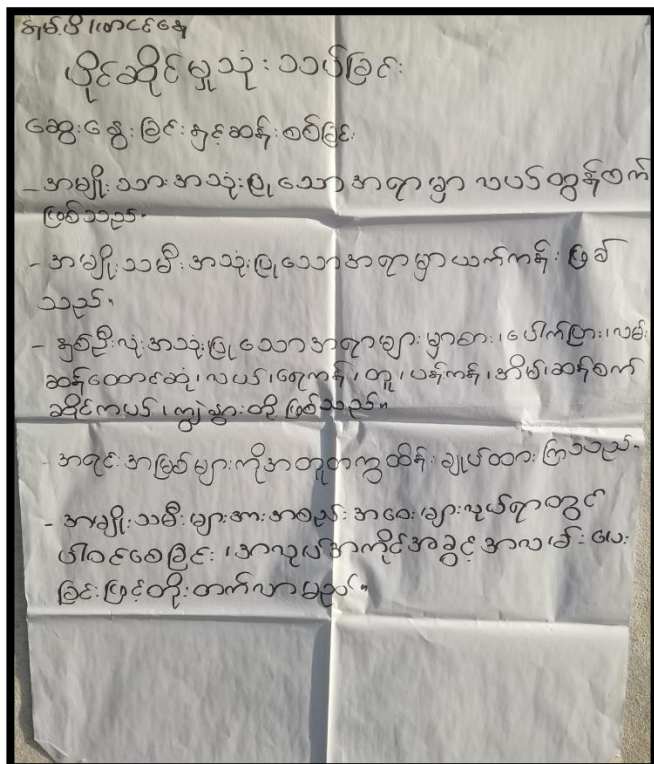 ပိုင်ဆိုင်မှုသုံးသပ်ခြင်း
ဆွေးနွေးခြင်းနှင့်ဆန်းစစ်ခြင်း
- အမျိုးသားအသုံးပြုသောအရာမှာ လယ်ထွန်စက်
ဖြစ်သည်။
- အမျိုးသမီးအသုံးပြုသောအရာမှာယက်ကန်းဖြစ်
သည်။
- နှစ်ဦးလုံးအသုံးပြုသောအရာများမှာဓား၊ပေါက်ပြား၊လမ်း
ဆန်တောင်းဆုံ၊လယ်၊ရေကန်၊တူ၊ပန်းကန်၊အိမ်၊ဆန်စက်
ဆိုင်ကယ်၊ကျွဲနွားတို့ဖြစ်သည်။
- အရင်းအမြစ်များကိုအတူတကွထိန်းချုပ်ထားကြသည်။
- အမျိုးသမီးများအားအစည်းအဝေးများသွယ်ရာတွင်
ပါဝင်စေခြင်း၊အလုပ်အကိုင်အခွင့်အလမ်းပေး
ခြင်းဖြင့်တိုးတက်လာမည်။